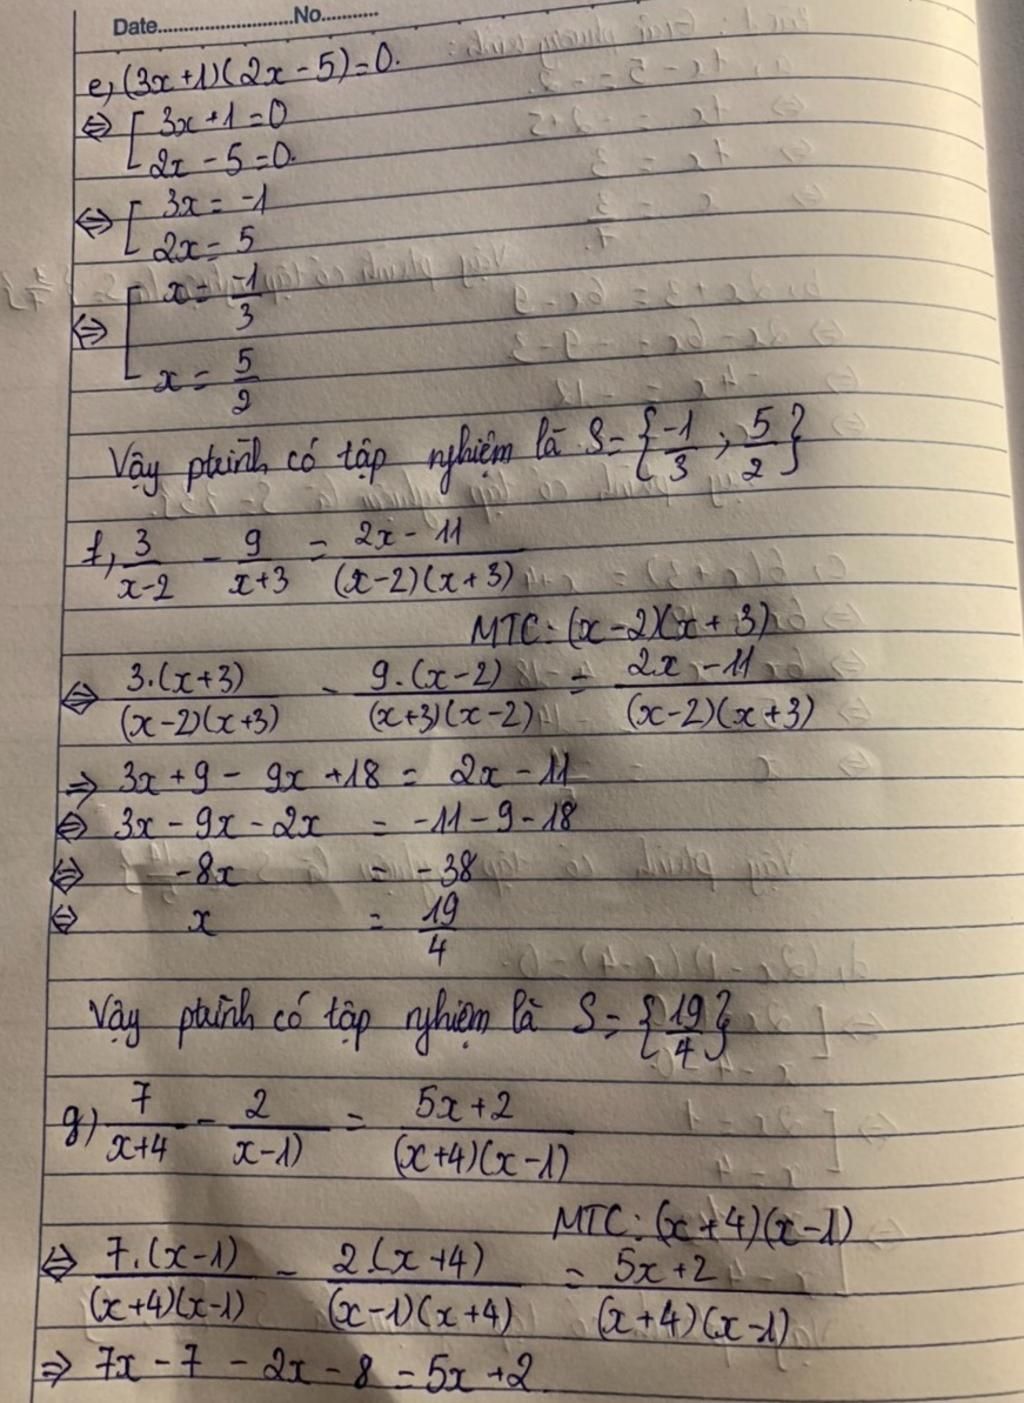 Date..............................No...........
e, (3x+1)(2x-5)=0.
⇔ [ 3x+1=0
2x-5=0.
⇔ [ 3x=-1
2x=5
⇔ [ x = -1/3
x = 5/2
Vậy ptrình có tập nghiệm là S={-1/3; 5/2}
f, 3/(x-2) - 9/(x+3) = (2x-11)/((x-2)(x+3))
MTC: (x-2)(x+3)
⇔ 3.(x+3)/((x-2)(x+3)) - 9.(x-2)/((x+3)(x-2)) = (2x-11)/((x-2)(x+3))
⇒ 3x+9-9x+18 = 2x-11
⇔ 3x-9x-2x = -11-9-18
⇔ -8x = -38
⇔ x = 19/4
Vậy ptrình có tập nghiệm là S={19/4}
g) 7/(x+4) - 2/(x-1) = (5x+2)/((x+4)(x-1))
MTC: (x+4)(x-1)
⇔ 7.(x-1)/((x+4)(x-1)) - 2.(x+4)/((x-1)(x+4)) = (5x+2)/((x+4)(x-1))
⇒ 7x-7-2x-8=5x+2.